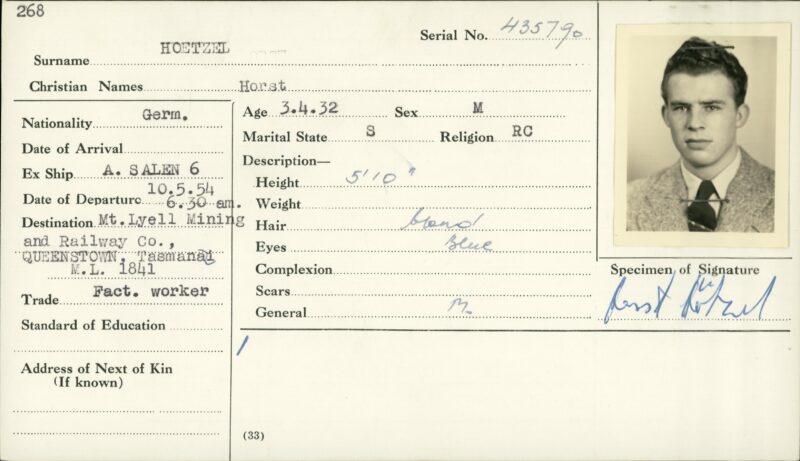 268
Serial No. 435790
Surname HOETZEL
Christian Names Horst
Nationality Germ.
Date of Arrival
Ex Ship A. SALEN 6
10.5.54
Date of Departure 6.30 am.
Destination Mt.Lyell Mining
and Railway Co.,
QUEENSTOWN, Tasmanai
M.L. 1841
Trade Fact. worker
Standard of Education
Address of Next of Kin
(If known)
Age 3.4.32 Sex M
Marital State S Religion RC
Description—
Height 5'10"
Weight
Hair blond
Eyes Blue
Complexion
Scars
General M
(33)
Specimen of Signature
Horst Hötzel